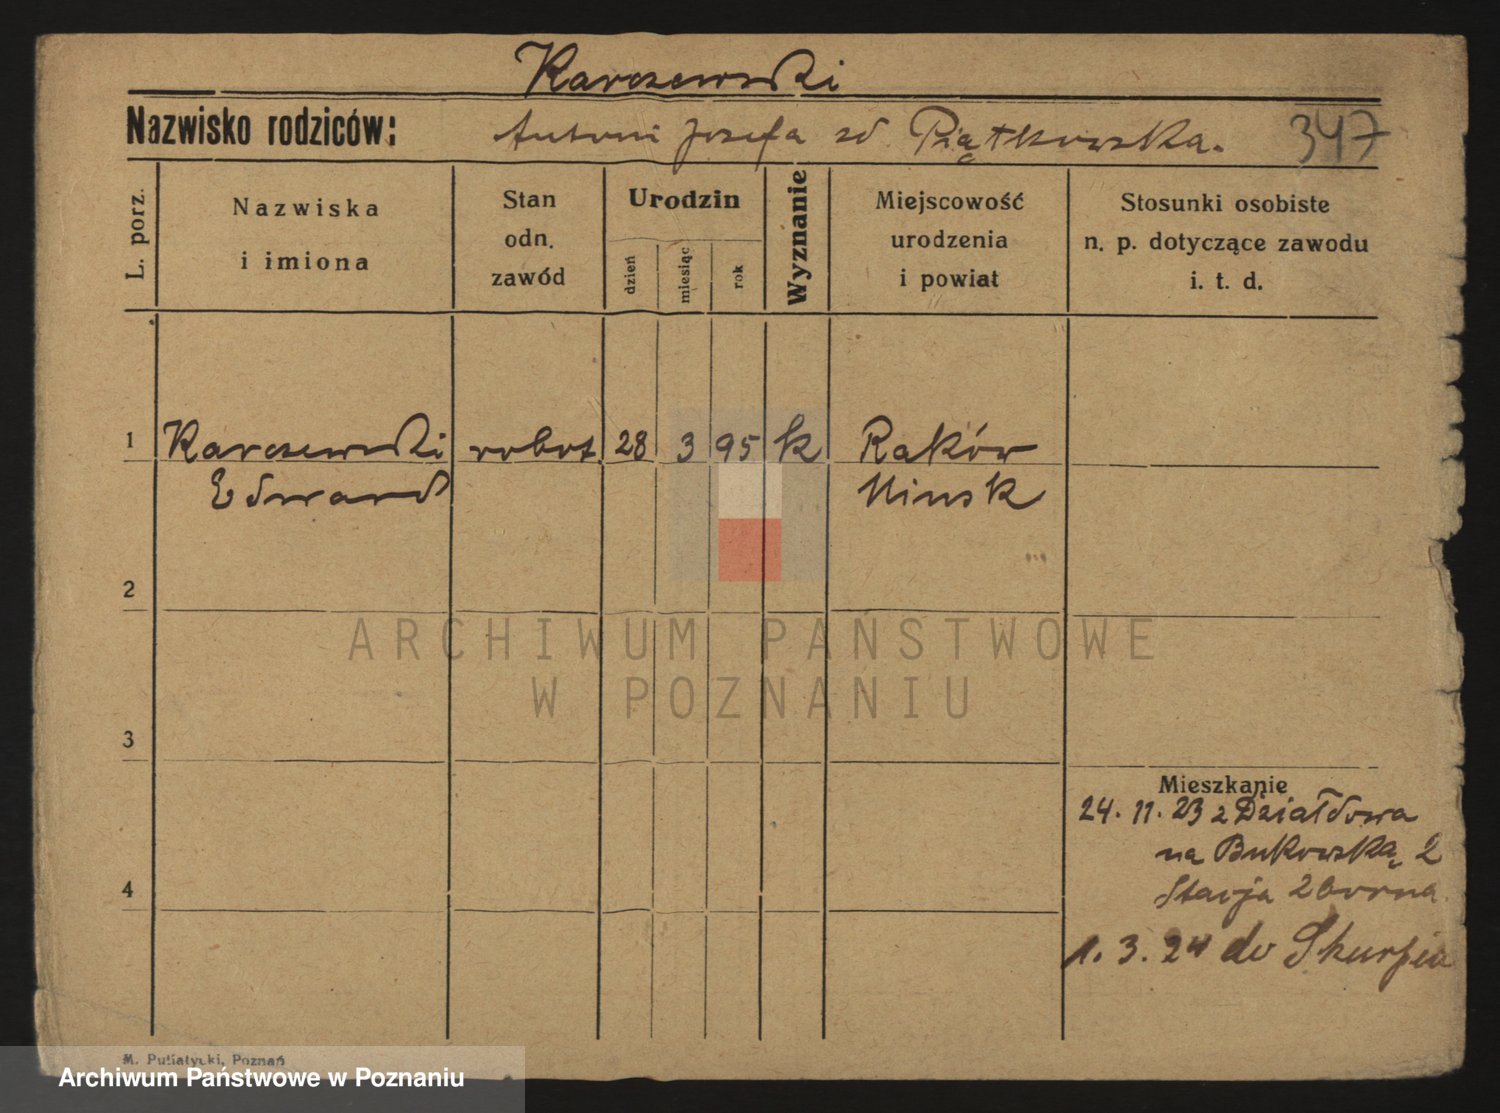 Karczewski
Nazwisko rodziców: Antoni Józefa zd. Piątkowska. 347
L. porz.
Nazwiska
i imiona
Stan
odn.
zawód
Urodzin
dzień
miesiąc
rok
Wyznanie
Miejscowość
urodzenia
i powiat
Stosunki osobiste
n. p. dotyczące zawodu
i. t. d.
1 Karczewski robot. 28 3 95 k Raków
Edward Minsk
2
ARCHIWUM PAŃSTWOWE
W POZNANIU
3
Mieszkanie
24. 11. 23 z Działdowa
na Bukowską 2
Stacja Zborna
4
1. 3. 24 do
M. Putiatycki, Poznań
Archiwum Państwowe w Poznaniu